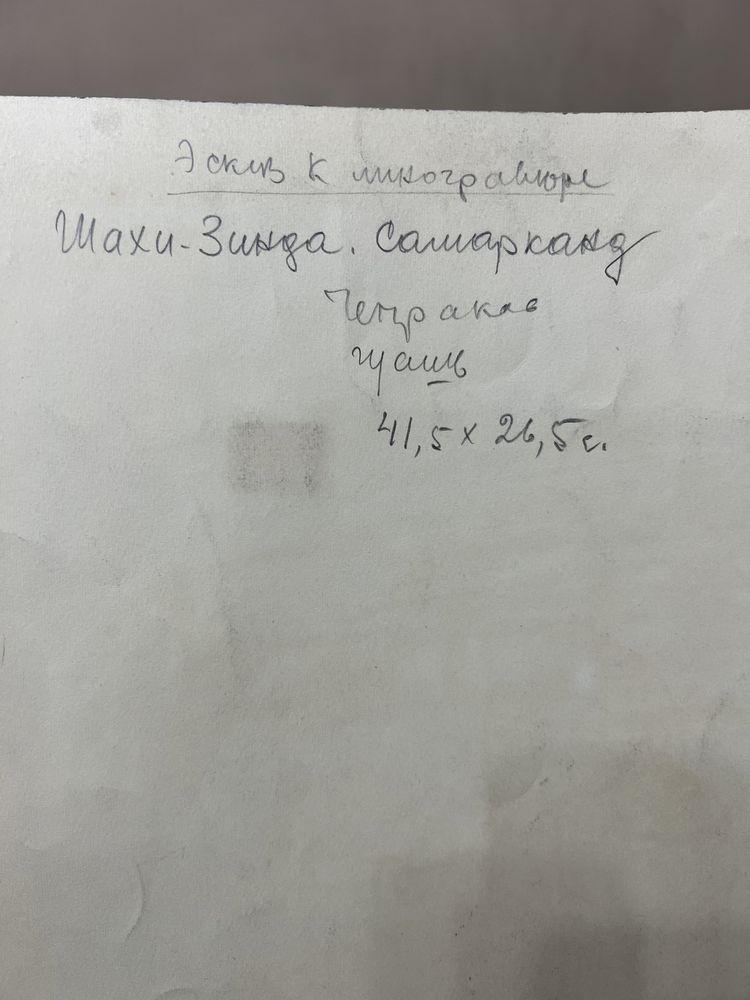 Эскиз к линогравюре
Шахи-Зинда. Самарканд
гуашь
41,5 х 26,5 с.